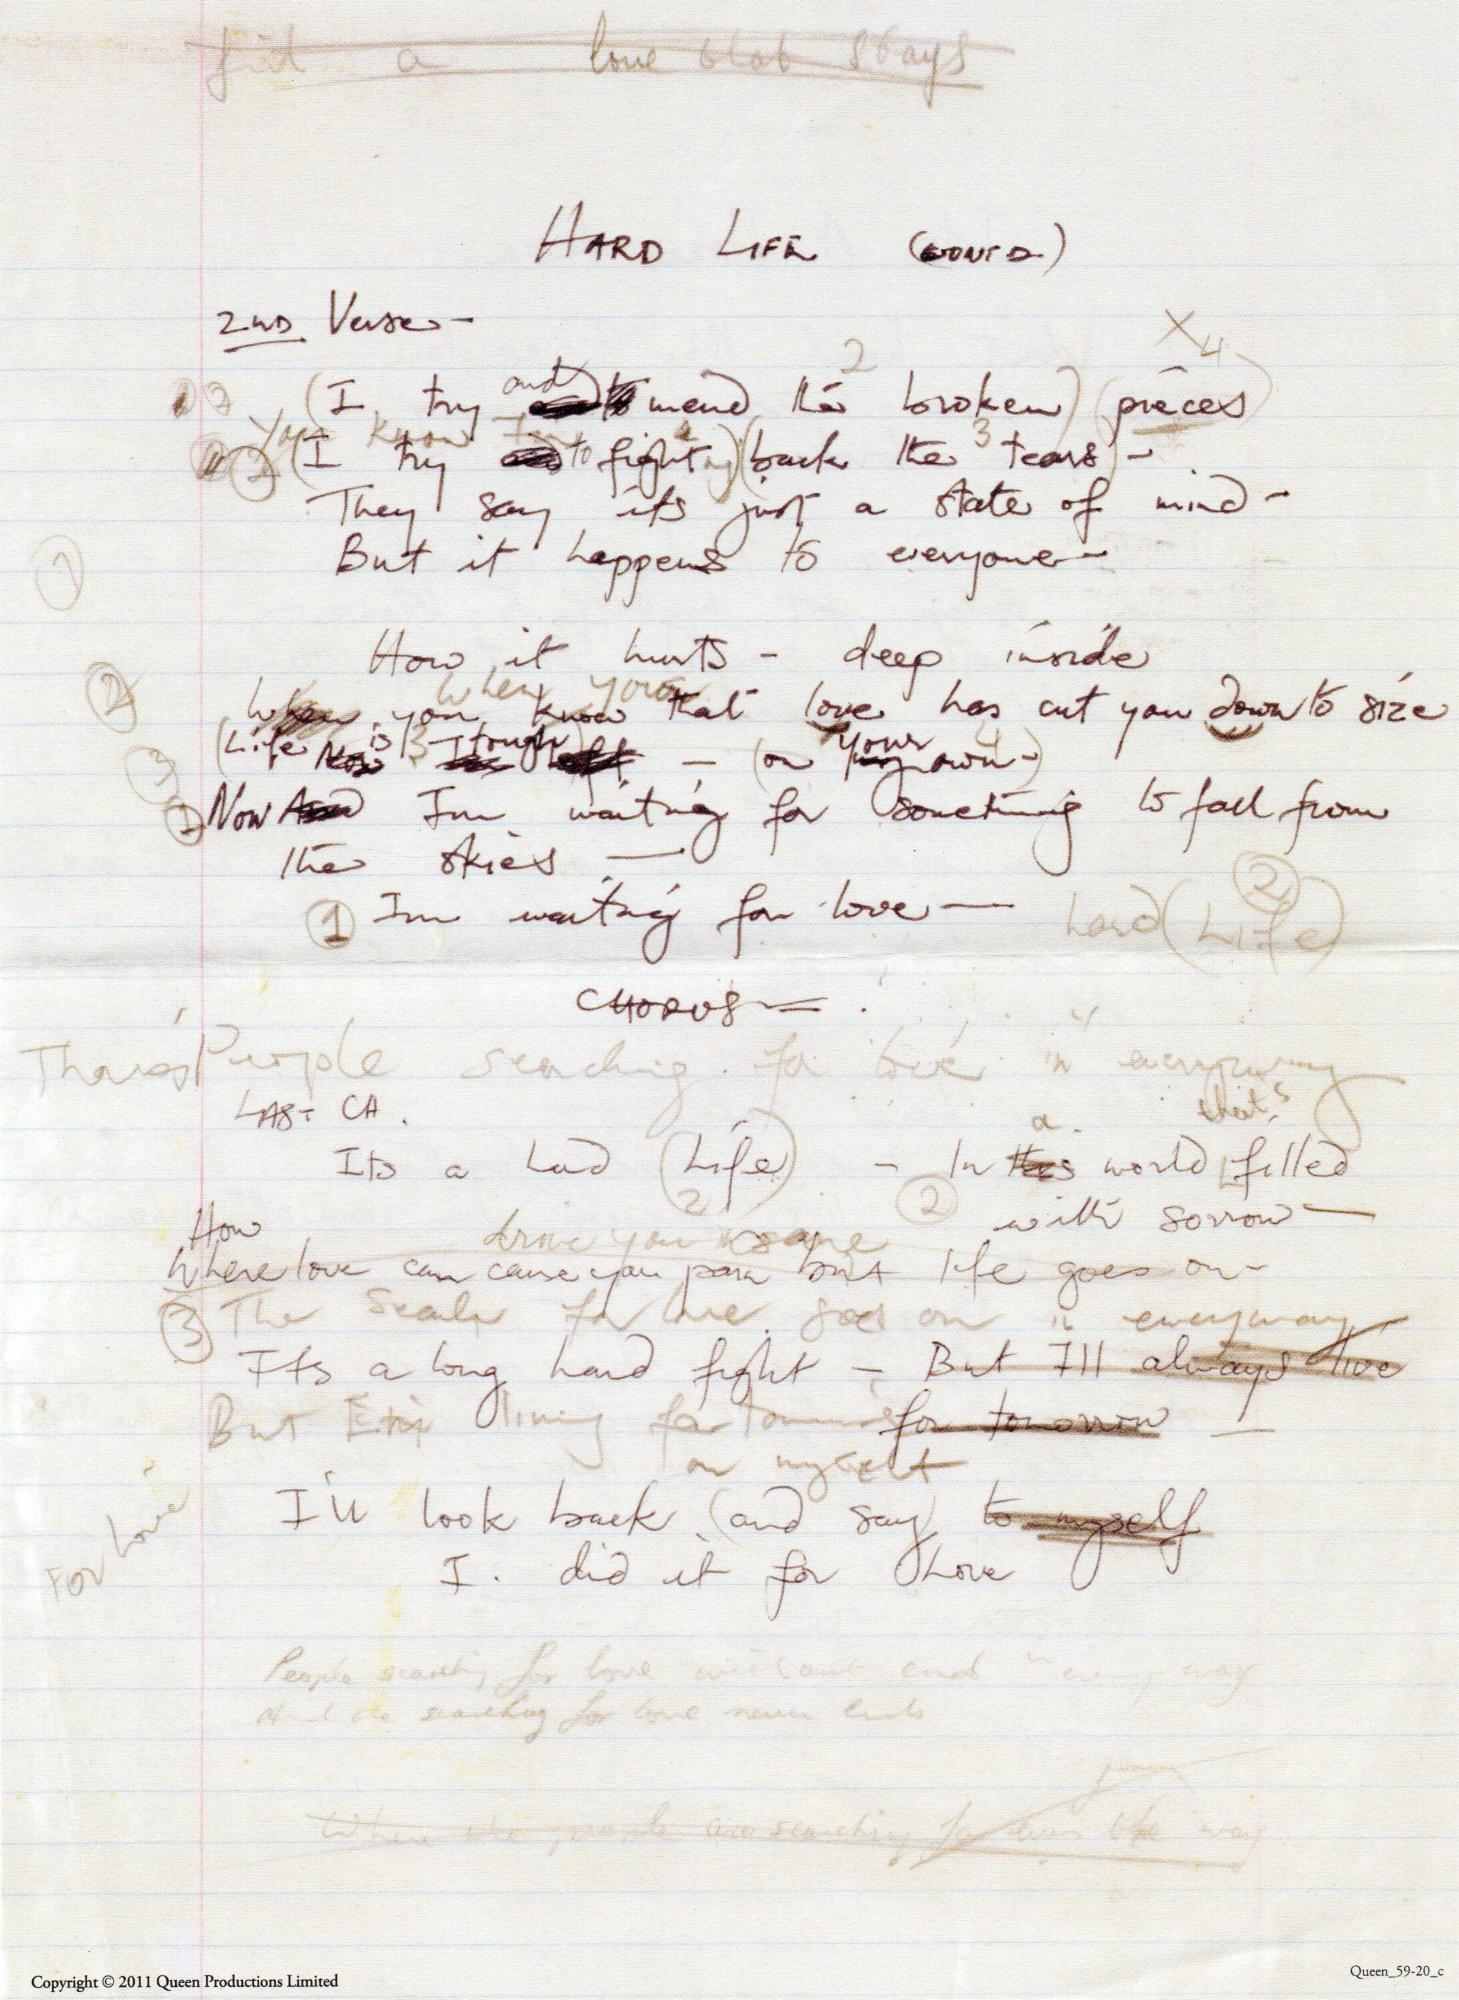 love that stays
HARD LIFE (CONT'D.)
2ND Verse -
X4
2
(I try and mend the broken) (pieces
You know I'm
2 (I try to fighting) (back the 3 tears) -
They say its just a state of mind -
But it happens to everyone -
1
How it hurts - deep inside
2
When your
When you know that love has cut you down to size
(Life is tough) - (on your own -)
3
Now I'm waiting for something to fall from
the skies —
1 I'm waiting for love — hard (Life) 2
CHORUS =
There's People searching for love in everyway
LAST CH.
a that's
Its a hard (Life) - In this world filled
2 2
with sorrow —
How drive you insane
Where love can cause you pain but life goes on -
3 The search for love goes on in everyway
Its a long hard fight - But I'll always live
But I'll living for for tomorrow —
on myself
I'll look back (and say) to myself
For Love
I. did it for Love
People searching for love without end in every way
searching for love never ends
Where the people are searching for the way
Copyright © 2011 Queen Productions Limited
Queen_59-20_c